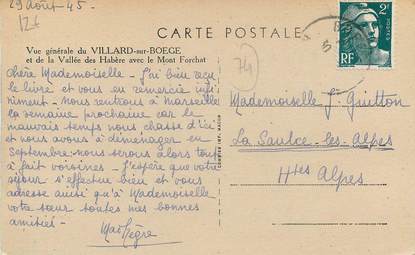 29 Août - 45 -
12 f
CARTE POSTALE
Vue générale du VILLARD-sur-BOEGE
et de la Vallée des Habère avec le Mont Forchat
2F
RF
74
Chère Mademoiselle - J'ai bien reçu
le livre et vous en remercie infi-
niment - Nous rentrons à Marseille
la semaine prochaine car le
mauvais temps nous chasse d'ici
et nous avons à déménager en
Septembre. nous serons alors tout
à fait voisines. J'espère que votre
séjour s'effectue bien et vous
adresse ainsi qu'à Mademoiselle
votre sœur toutes mes bonnes
amitiés -
Mademoiselle J. Guitton
La Saulce-les-Alpes
Htes Alpes